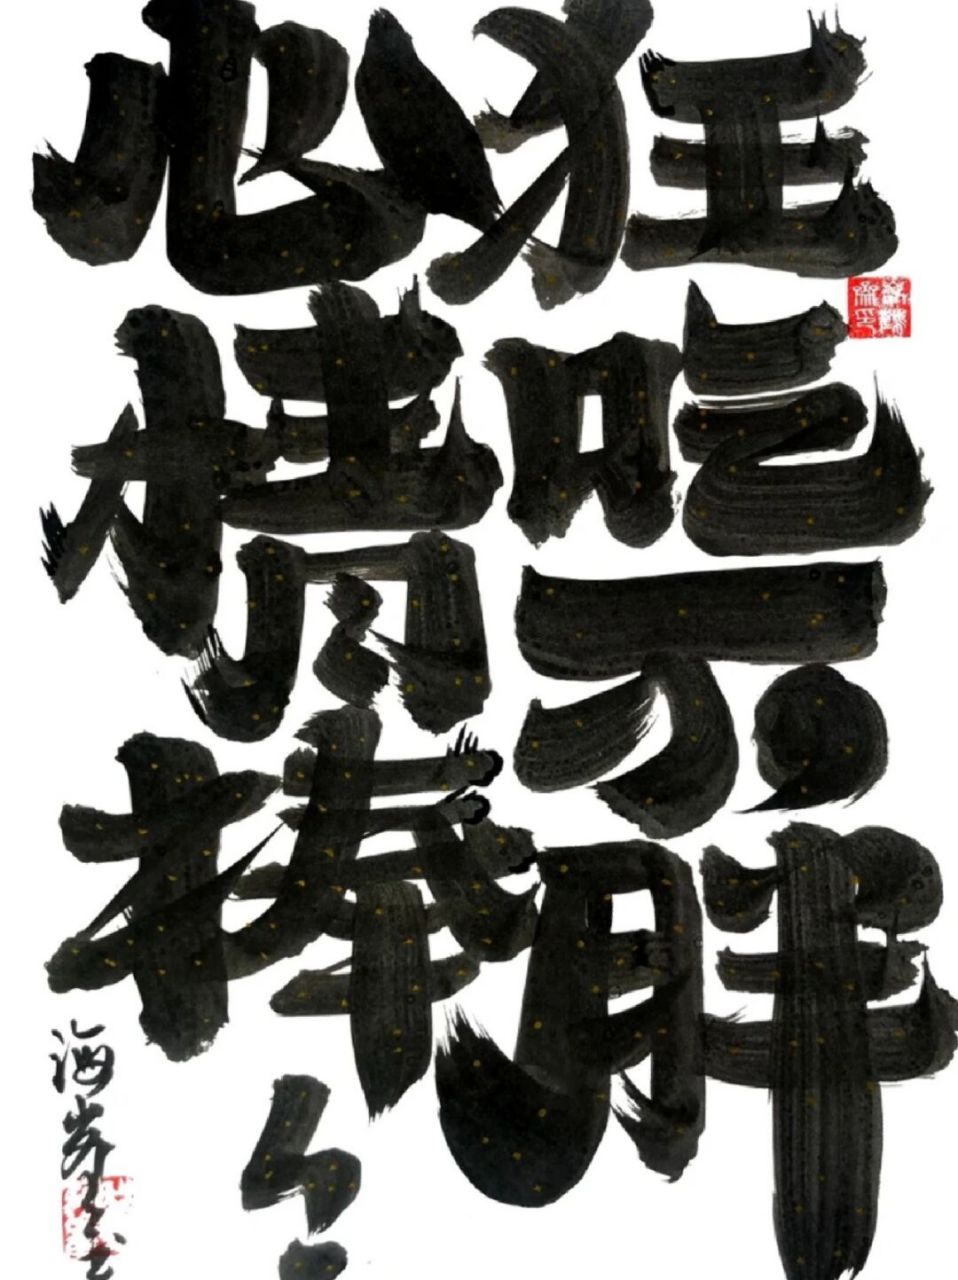 狂吃不胖
心情棒々
海岸